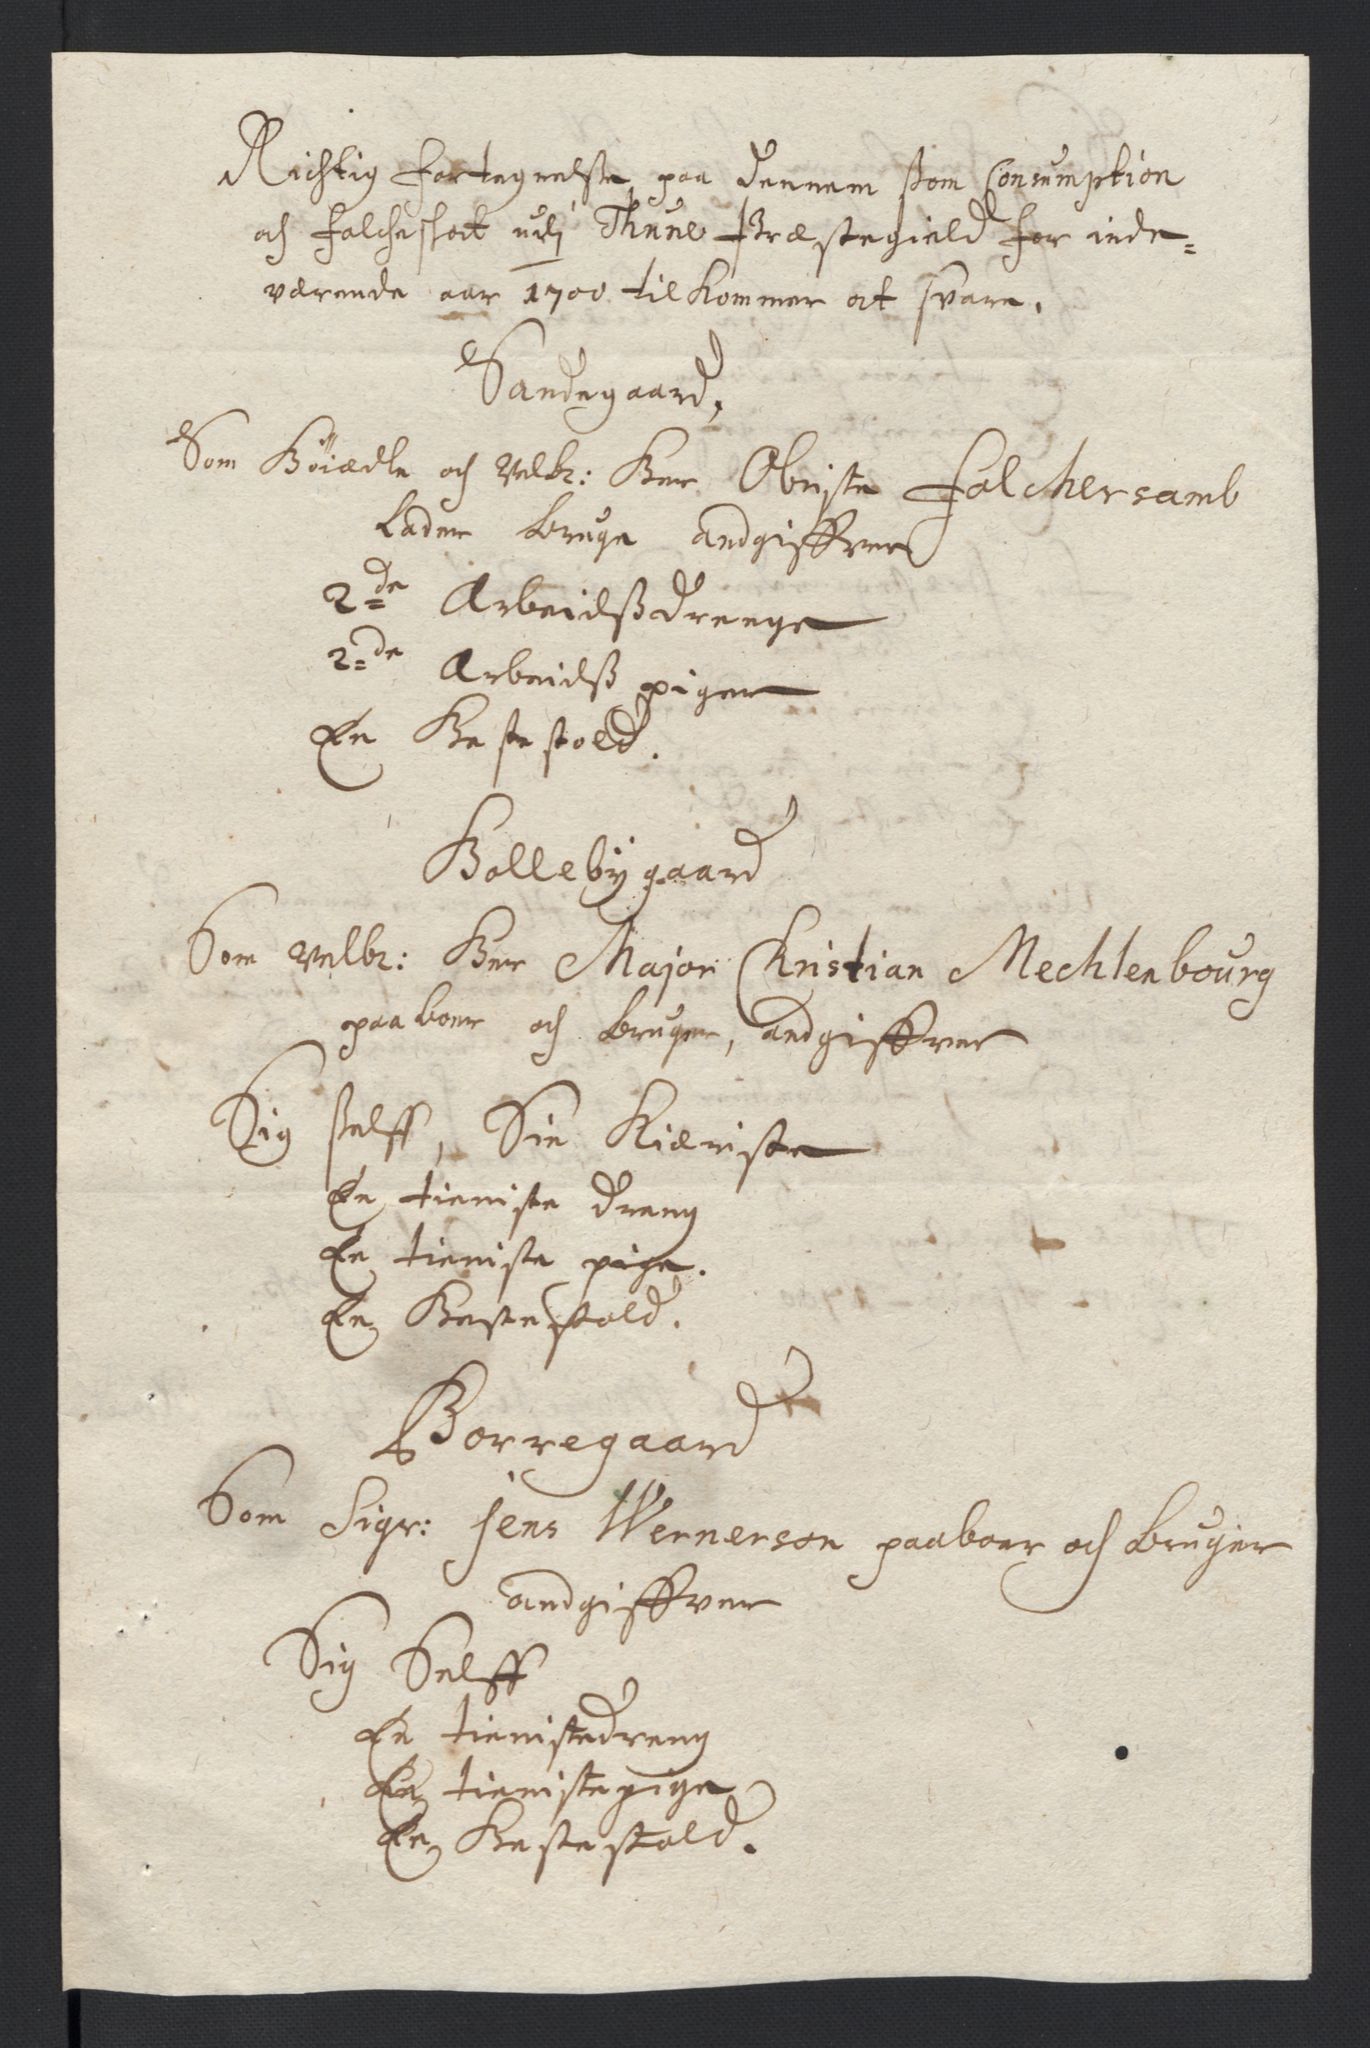 Richtig fortegnelse paa dennem som Consumption
och folcheskat udj Thune Præstegield for inde=
værende aar 1700 tilkommer at svare.
Sandegaard,
Som Höiædle och Velb: Her Obriste Folchersamb
Lader bruge andgiffver
2=de Arbeidsdrenge
2=de Arbeids piger
En Hestestold.
Hollebÿgaard
Som Velb: Her Major Christian Mechlenbourg
paaboer och bruger, andgiffver
Sig selff, Sin Kieriste
En tieniste dreng
En tieniste pige.
En Hestestold.
Borregaard
Som Sigr: Jens Wernerson paaboer och bruger
andgiffver
Sig Selff
En tienistedreng
En tienistepige
En Hestestold.